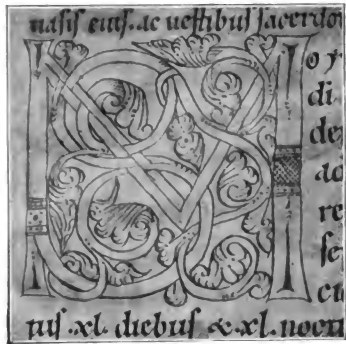 nasis eius. ac uestibus sacerdo
M
oy
di
de
ac
re
se
ci
tus .xl. diebus & .xl. nocti